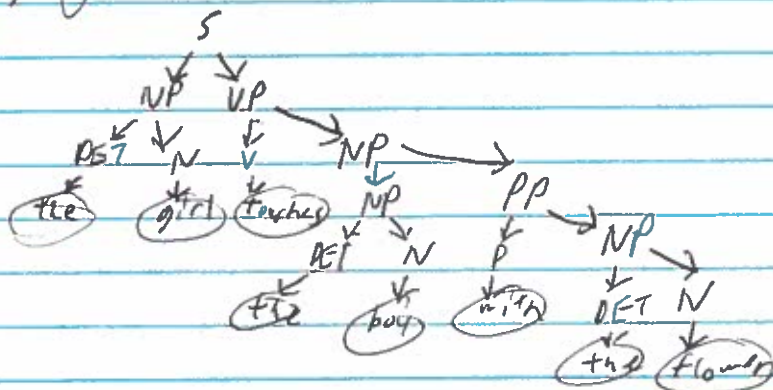 S
NP VP
DET N V NP
the girl touches NP PP
DET N P NP
the boy with DET N
the flower